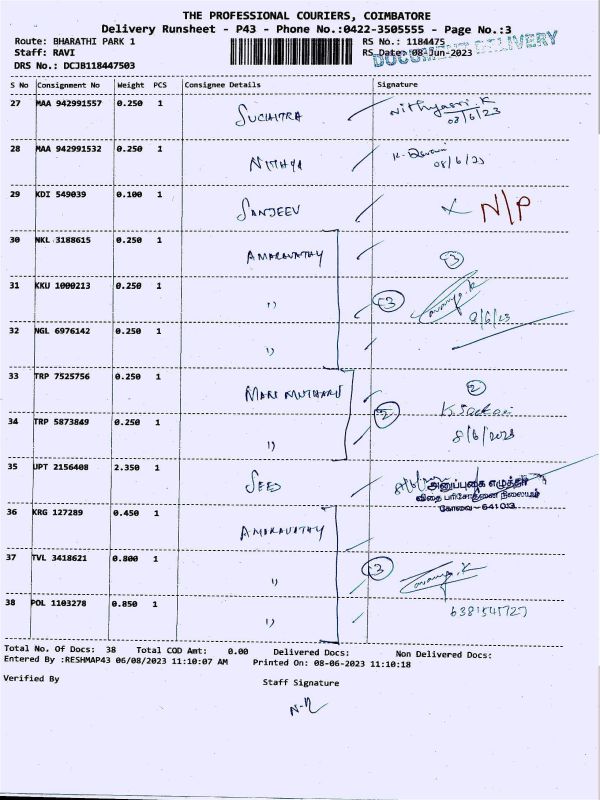 THE PROFESSIONAL COURIERS, COIMBATORE
Delivery Runsheet - P43 - Phone No.:0422-3505555 - Page No.:3
Route: BHARATHI PARK 1 RS No.: 1184475
Staff: RAVI RS Date: 08-Jun-2023 DOCUMENT DELIVERY
DRS No.: DCJB118447503
S No Consignment No Weight PCS Consignee Details Signature
27 MAA 942991557 0.250 1 SUCHITRA Nithyasri.K
08/6/23
28 MAA 942991532 0.250 1 NITHYA
08/6/23
29 KDI 549039 0.100 1 SANJEEV N/P
30 NKL 3188615 0.250 1 AMARAVATHY 3
31 KKU 1000213 0.250 1 1) 3
8/6/23
32 NGL 6976142 0.250 1 1)
33 TRP 7525756 0.250 1 MARI MUTHARU 2
34 TRP 5873849 0.250 1 1) 2
8/6/2023
35 UPT 2156408 2.350 1 SEED
அனுப்புகை எழுத்தர்
விதை பரிசோதனை நிலையம்
கோவை – 641 013.
36 KRG 127289 0.450 1 AMARAVATHY
37 TVL 3418621 0.800 1 1) 3
38 POL 1103278 0.850 1 1) 6381541727
Total No. Of Docs: 38 Total COD Amt: 0.00 Delivered Docs: Non Delivered Docs:
Entered By :RESHMAP43 06/08/2023 11:10:07 AM Printed On: 08-06-2023 11:10:18
Verified By Staff Signature